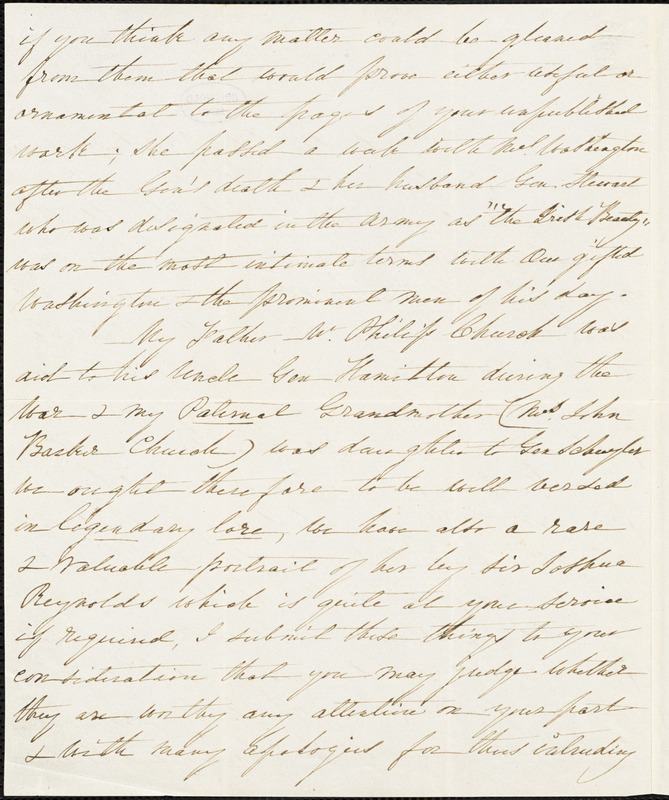 if you think any matter could be gleaned
from them that would prove either useful or
ornamental to the pages of your unpublished
work; she passed a week with Mrs. Washington
after the Gen's death & her husband Gen. Stewart
who was designated in the Army as "the Irish Beauty",
was on the most intimate terms with Our gifted
Washington & the prominent men of his day.
My Father Mr. Philip Church was
aid to his Uncle Gen Hamilton during the
War & my Paternal Grandmother (Mrs. John
Barker Church) was daughter to Gen Schuyler
we ought therefore to be well versed
in legendary lore, we have also a rare
& valuable portrait of her by Sir Joshua
Reynolds which is quite at your service
if required, I submit these things to your
consideration that you may judge whether
they are worthy any attention on your part
& with many apologies for thus intruding